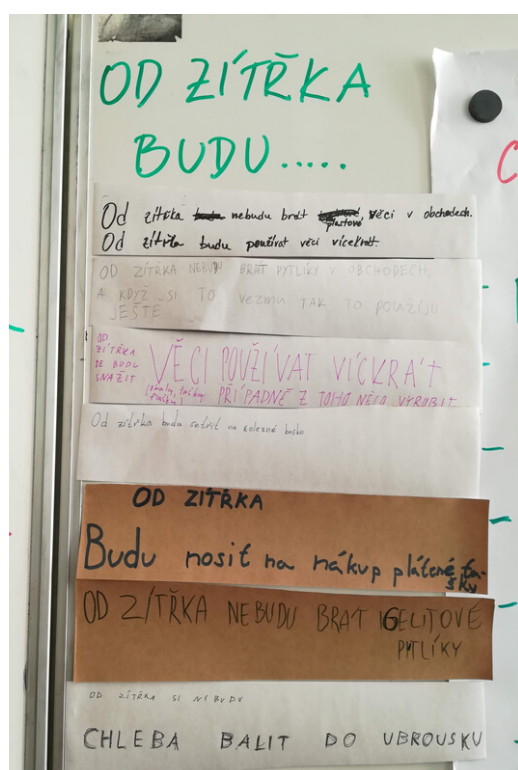 OD ZÍTŘKA
BUDU.....
Od zítřka nebudu brát plastové věci v obchodech.
Od zítřka budu používat věci vícekrát.
OD ZÍTŘKA NEBUDU BRÁT PYTLÍKY V OBCHODECH,
A KDYŽ SI TO VEZMU TAK TO POUŽIJU
JEŠTĚ
OD
ZÍTŘKA
SE BUDU
SNAŽIT
VĚCI POUŽÍVAT VÍCKRÁT
PŘÍPADNĚ Z TOHO NĚCO VYROBIT
Od zítřka budu šetřit na
OD ZÍTŘKA
Budu nosit na nákup plátěné ta-
šky
OD ZÍTŘKA NEBUDU BRÁT IGELITOVÉ
PYTLÍKY
OD ZÍTŘKA SI NEBUDU
CHLEBA BALIT DO UBROUSKU
C